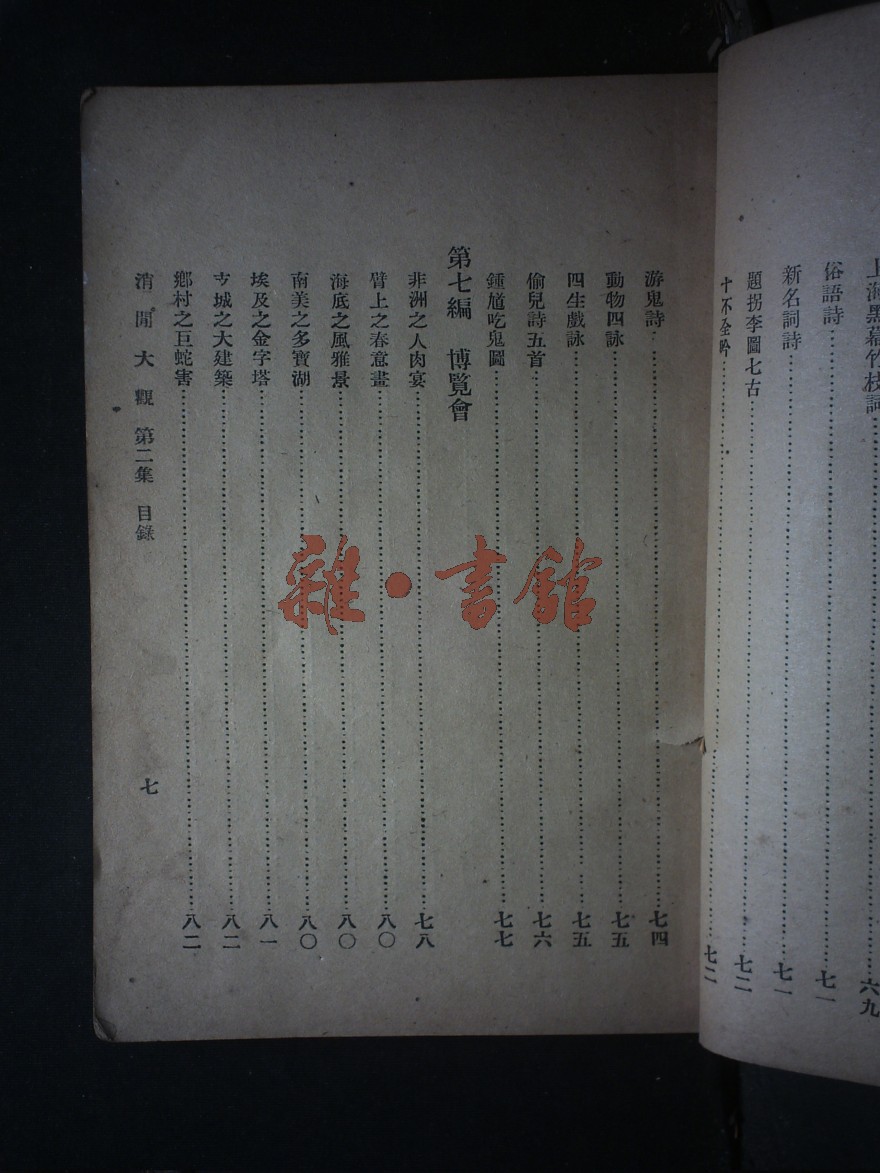 上海黑幕竹枝詞 六九
俗語詩 七一
新名詞詩 七一
題拐李圖七古 七二
十不全吟 七二
游鬼詩 七四
動物四詠 七五
四生戲詠 七五
偷兒詩五首 七六
鍾馗吃鬼圖 七七
第七編 博覽會
非洲之人肉宴 七八
臂上之春意畫 八〇
海底之風雅景 八〇
南美之多寶湖 八〇
埃及之金字塔 八一
城之大建築 八二
鄉村之巨蛇害 八二
消閒大觀 第二集 目錄
七
雜·書館